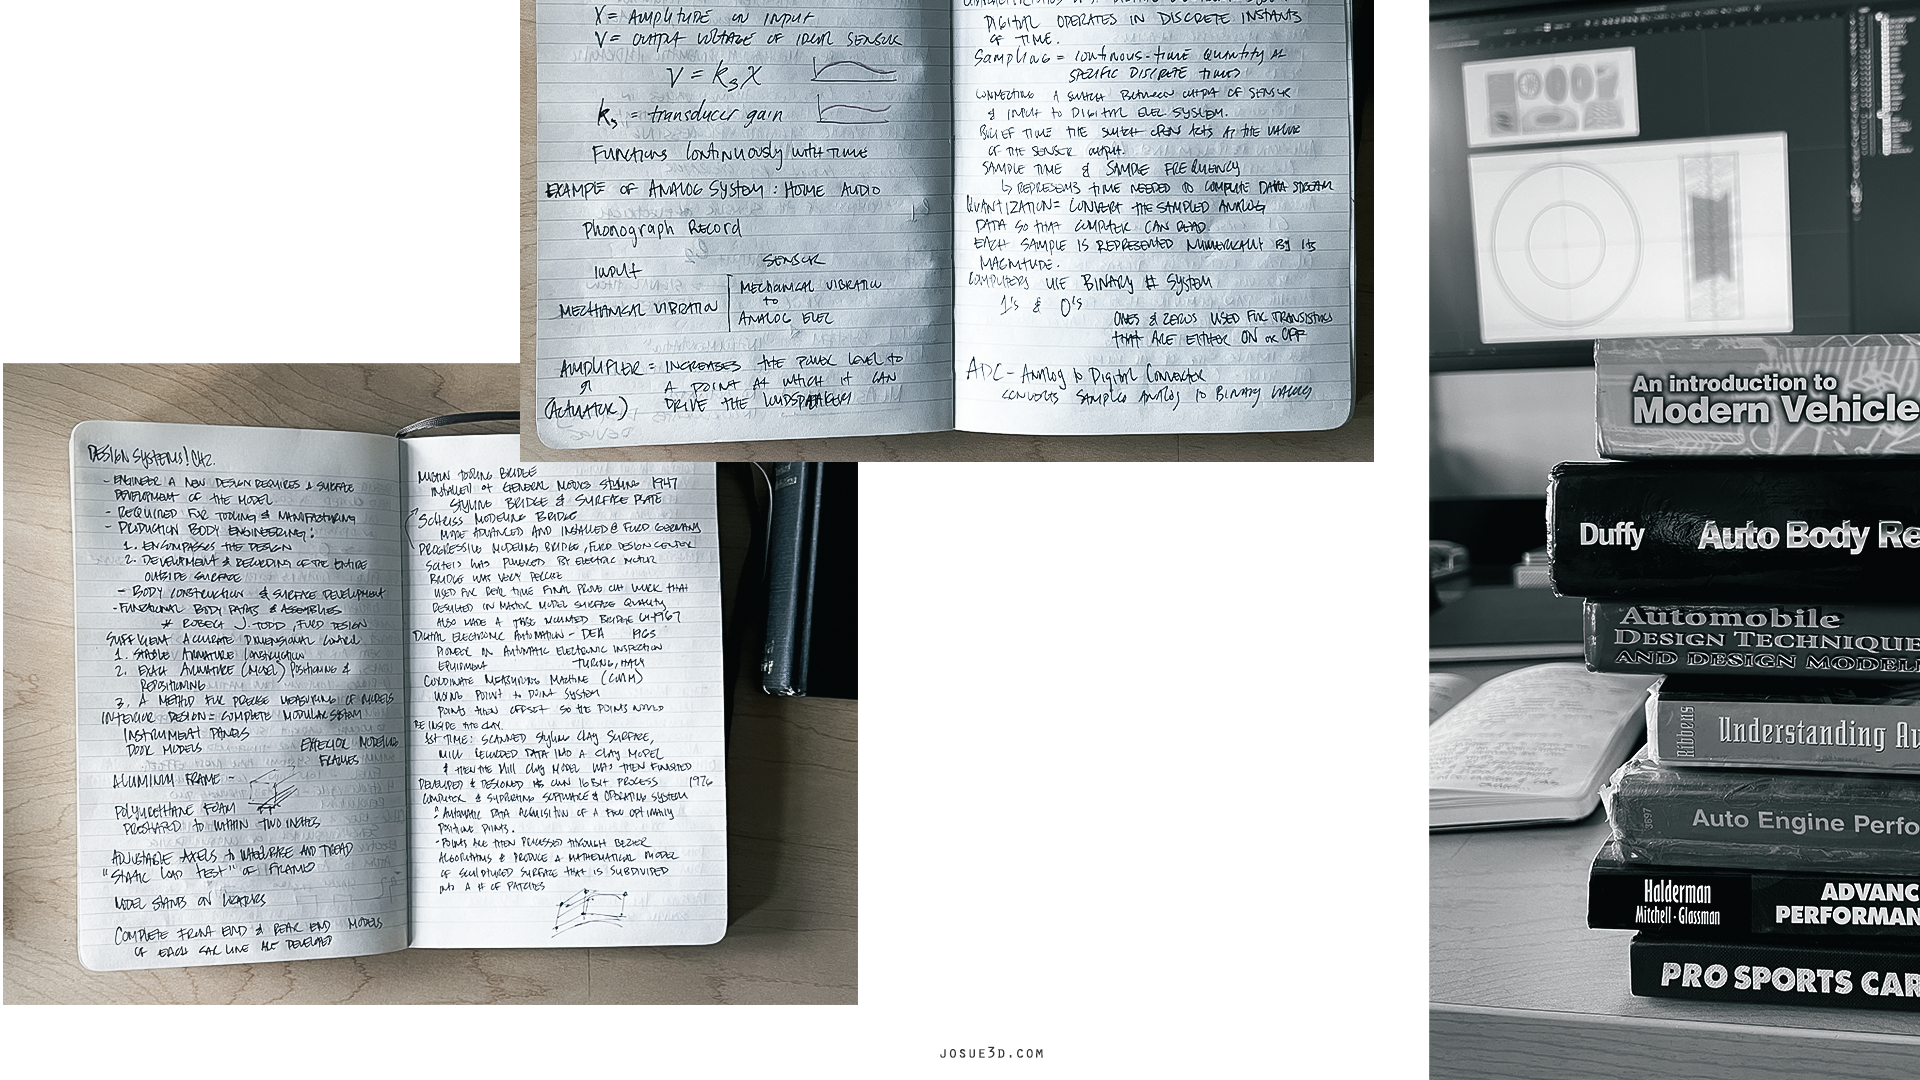 X = AMPLITUDE ON INPUT
V = OUTPUT VOLTAGE OF IDEAL SENSOR
V = k₃X
k₃ = transducer gain
FUNCTIONS CONTINUOUSLY WITH TIME
EXAMPLE OF ANALOG SYSTEM: HOME AUDIO
Phonograph RECORD
INPUT
SENSOR
MECHANICAL VIBRATION
MECHANICAL VIBRATION
to
ANALOG ELEC
AMPLIFIER = INCREASES THE POWER LEVEL to
A POINT AT WHICH IT CAN
(ACTUATOR) DRIVE THE LOUDSPEAKERS
DIGITAL OPERATES IN DISCRETE INSTANTS
OF TIME.
SAMPLING = CONTINOUS-TIME QUANTITY AT
SPECIFIC DISCRETE TIMES
CONNECTING A SWITCH BETWEEN OUTPUT OF SENSOR
& INPUT TO DIGITAL ELEC SYSTEM.
BRIEF TIME THE SWITCH OPENS ACTS AT THE VALUE
OF THE SENSER OUTPUT.
SAMPLE TIME & SAMPLE FREQUENCY
↳ REPRESENTS TIME NEEDED TO COMPLETE DATA STREAM
QUANTIZATION = CONVERT THE SAMPLED ANALOG
DATA SO THAT COMPUTER CAN READ.
EACH SAMPLE IS REPRESENTED NUMERICALLY BY ITS
MAGNITUDE.
COMPUTERS USE BINARY # SYSTEM
1's & 0's
ONES & ZEROS USED FOR TRANSISTORS
THAT ARE EITHER ON or OFF
ADC - Analog to Digital Converter
CONVERTS SAMPLED ANALOG TO BINARY VALUES
DESIGN SYSTEMS! CH2.
- ENGINEER A NEW DESIGN REQUIRES A SURFACE
DEVELOPMENT OF THE MODEL.
- REQUIRED FOR TOOLING & MANUFACTURING
- PRODUCTION BODY ENGINEERING:
1. ENCOMPASSES THE DESIGN
2. DEVELOPMENT & RECORDING OF THE ENTIRE
OUTSIDE SURFACE
- BODY CONSTRUCTION & SURFACE DEVELOPMENT
- FUNCTIONAL BODY PARTS & ASSEMBLIES
* ROBERT J. TODD, FORD DESIGN
SUFFICIENT ACCURATE DIMENSIONAL CONTROL
1. STABLE ARMATURE CONSTRUCTION
2. EXACT ARMATURE (MODEL) POSITIONING &
REPOSITIONING
3. A METHOD FOR PRECISE MEASURING OF MODELS
INTERIOR DESIGN = COMPLETE MODULAR SYSTEM
INSTRUMENT PANELS
DOOR MODELS
EXTERIOR MODELING
FRAMES
ALUMINUM FRAME -
POLYURETHANE FOAM
PRESHAPED TO WITHIN TWO INCHES
ADJUSTABLE AXELS to WHEELBASE AND TREAD
"STATIC LOAD TEST" OF FRAME
MODEL STANDS ON LOCATORS
COMPLETE FRONT END & REAR END MODELS
OF EACH CAR LINE ARE DEVELOPED
TOOLING BRIDGE
INSTALLED at GENERAL MOTORS STYLING 1947
STYLING BRIDGE & SURFACE PLATE
MODELING BRIDGE
MORE ADVANCED AND INSTALLED @ FORD GERMANY
PROGRESSIVE MODELING BRIDGE, FORD DESIGN CENTER
WAS POWERED BY ELECTRIC MOTOR
BRIDGE WAS VERY PRECISE
USED FOR REAL TIME FINAL PROVE OUT WORK THAT
RESULTED IN MASTER MODEL SURFACE QUALITY
ALSO MADE A MOUNTED BRIDGE 1967
DIGITAL ELECTRONIC AUTOMATION - DEA 1965
PIONEER IN AUTOMATIC ELECTRONIC INSPECTION
EQUIPMENT TURING, ITALY
COORDINATE MEASURING MACHINE (CMM)
USING POINT to POINT SYSTEM
POINTS THEN OFFSET SO THE POINTS WOULD
BE INSIDE THE CLAY.
1ST TIME: SCANNED STYLING CLAY SURFACE,
MILL RECORDED DATA INTO A CLAY MODEL
& THEN THE MILL CLAY MODEL WAS THEN FINISHED
DEVELOPED & DESIGNED OWN 16 BIT PROCESS 1976
COMPUTER & SUPPORTING SOFTWARE & OPERATING SYSTEM
- AUTOMATIC DATA ACQUISITION OF A FEW OPTIMALLY
POSITIONED POINTS.
- POINTS ARE THEN PROCESSED THROUGH BEZIER
ALGORITHMS & PRODUCE A MATHEMATICAL MODEL
OF SCULPTURED SURFACE THAT IS SUBDIVIDED
INTO A # OF PATCHES
An introduction to
Modern Vehicle
Duffy Auto Body Re
Automobile
DESIGN TECHNIQUE
AND DESIGN MODEL
Ribbens Understanding Au
3697 Auto Engine Perfo
Halderman
Mitchell-Glassman
ADVANC
PERFORMAN
PRO SPORTS CAR
JOSUE3D.COM